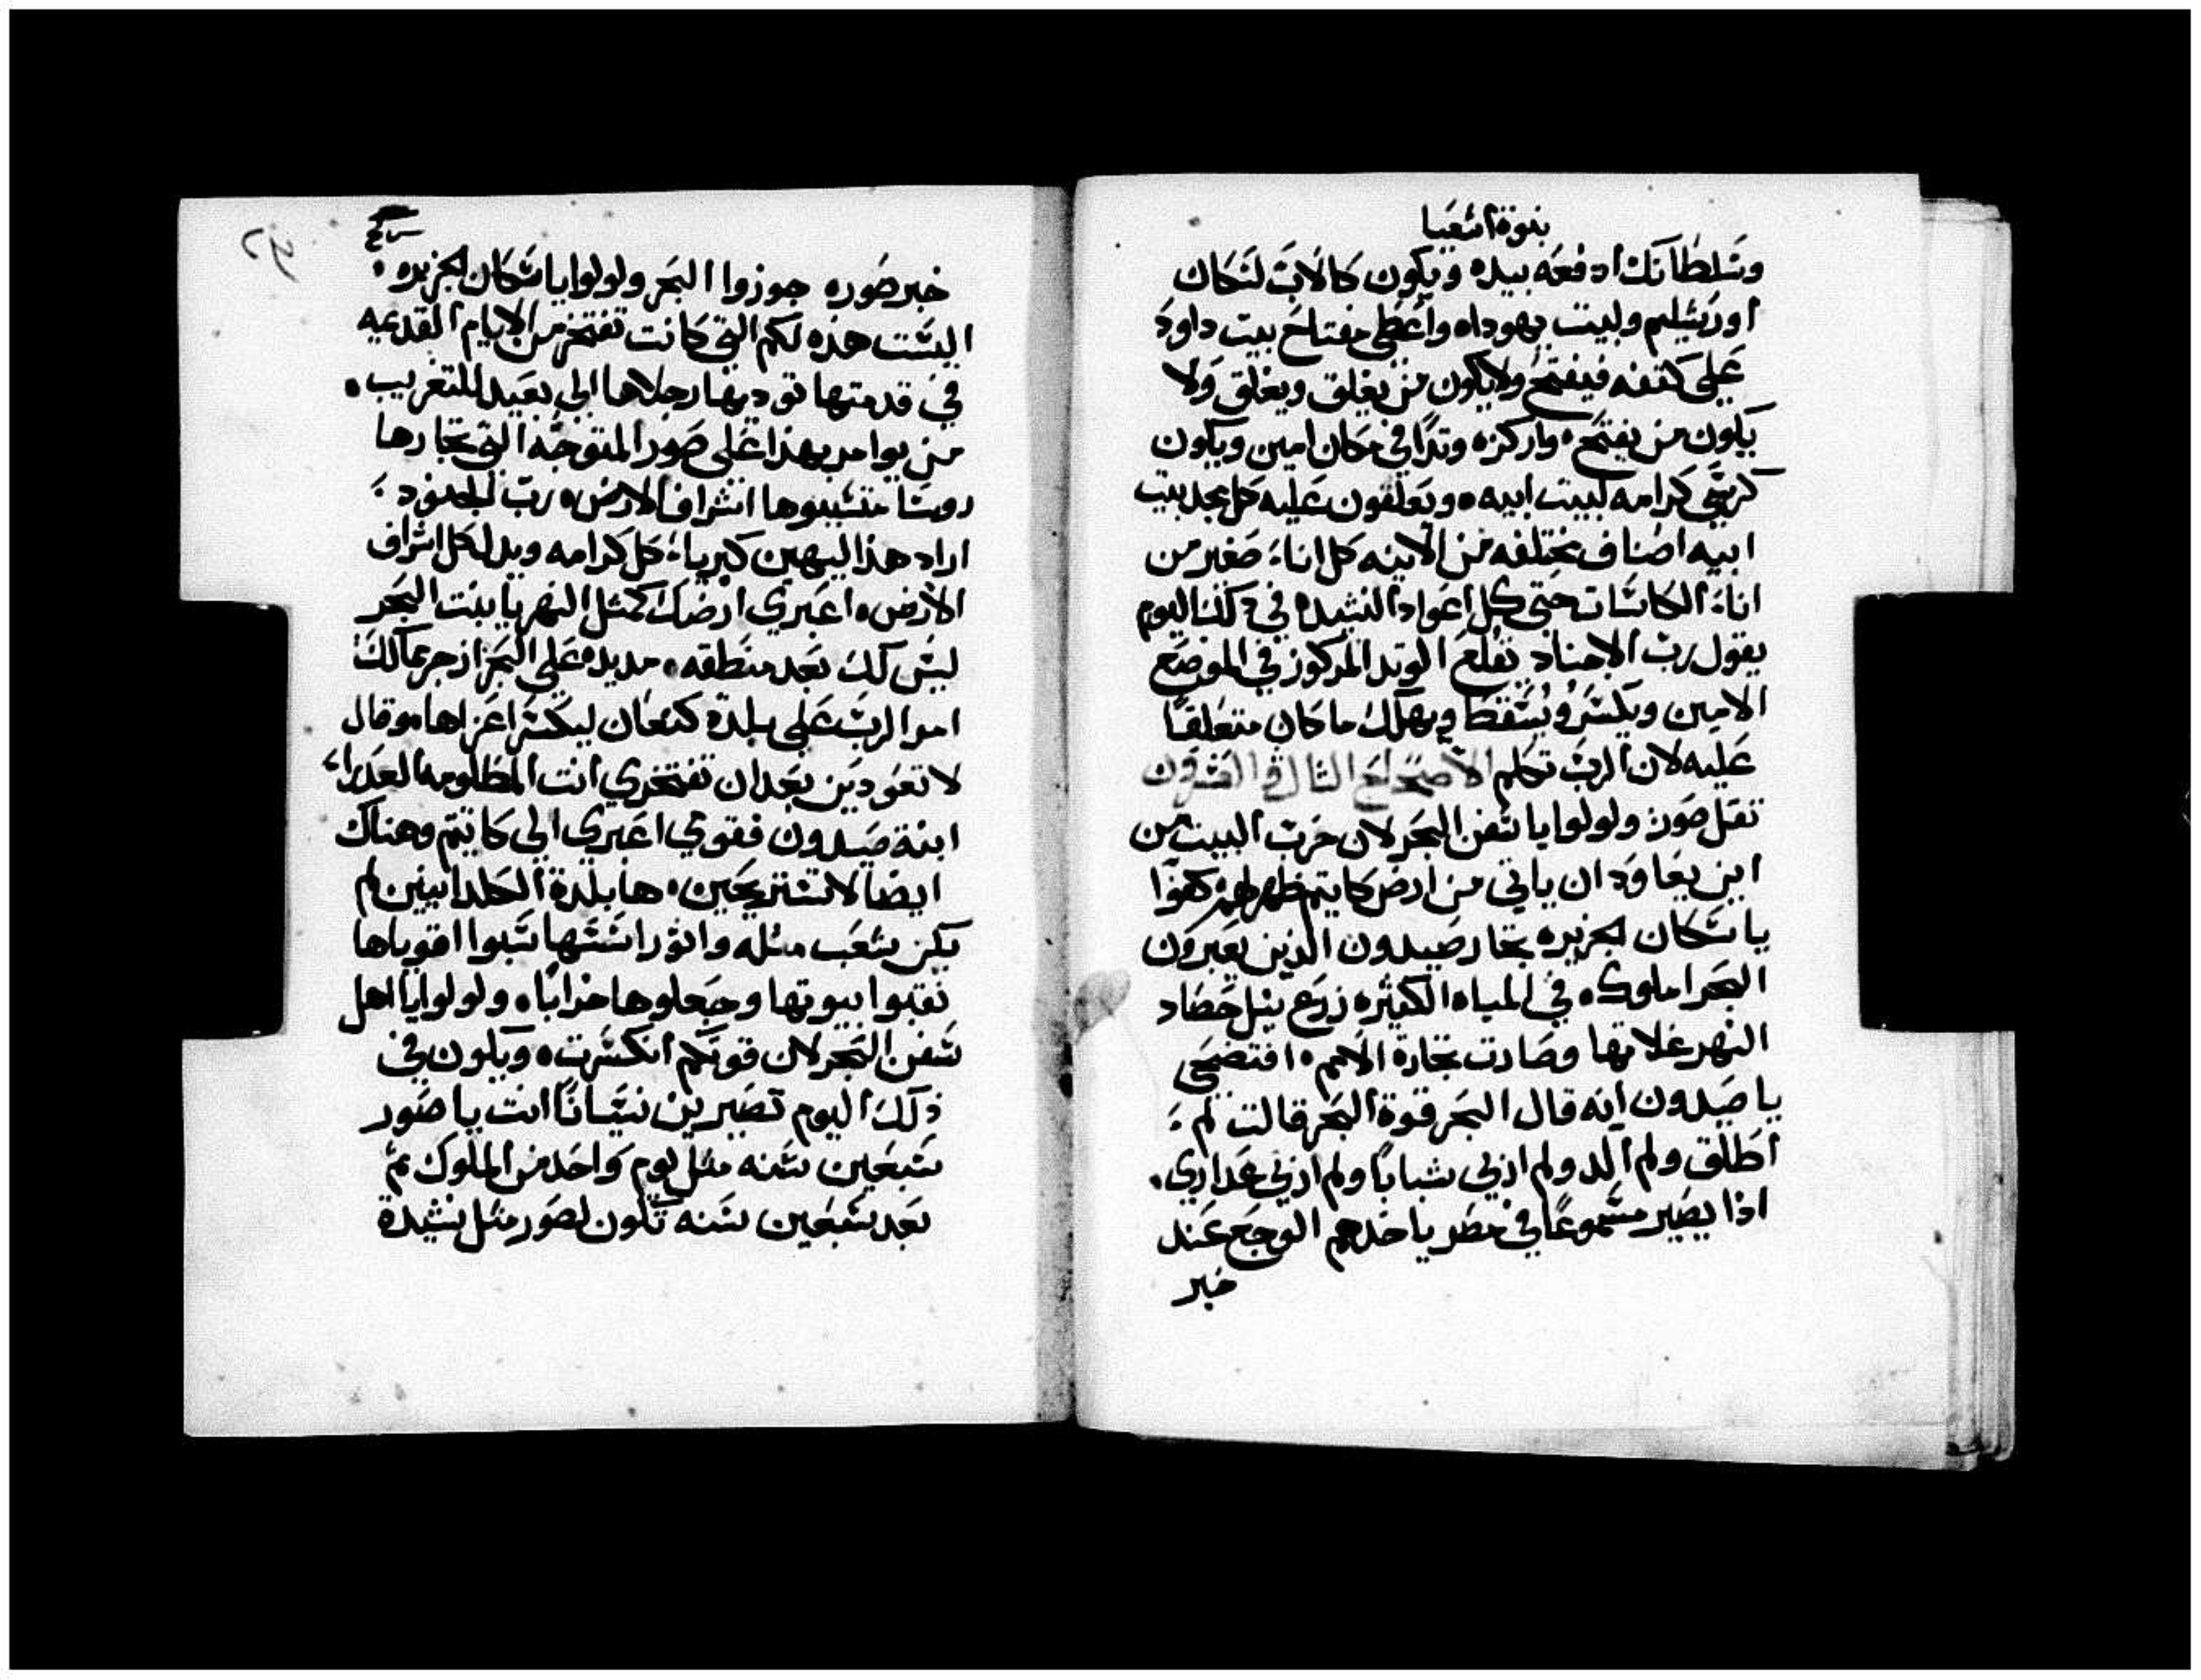 نبوة اشعيا
وسلطانك ادفعه بيده ويكون كالاب لسكان
اورشليم ولبيت يهوداه واعطى مفتاح بيت داود
على كتفه فيفتح ولا يكون من يغلق ويغلق ولا
يكون من يفتح ه واركزه وتدًا في مكان امين ويكون
كرسي كرامه لبيت ابيه ه ويعلقون عليه كل مجد بيت
ابيه اصناف مختلفه من الانيه كل اناء صغير من
اناء الكاسات حتى كل اعواد النشيد ه في ذلك اليوم
يقول رب الاجناد يقلع الوتد المركوز في الموضع
الامين ويكسر ويسقط ويهلك ما كان متعلقًا
عليه لان الرب تكلم الاصحاح الثالث والعشرون
ثقل صور ولولوا يا سفن البحر لان خرب البيت من
اين يعاود ان ياتي من ارض كاتيم ظهر لهم كفوا
يا سكان الجزيره تجار صيدون الذين يعبرون
البحر املوك ه في المياه الكثيره زرع نيل حصاد
النهر غلاتها وصارت تجارة الامم ه افتضحي
يا صيدون انه قال البحر قوة البحر قالت لم
اطلق ولم الد ولم اربي شبابًا ولم اربي عداري
اذا يصير مسموعًا في مصر ياخدهم الوجع عند
خبر
خبر صوره جوزوا البحر ولولوا يا سكان الجزيره
اليست هذه لكم التي كانت تفتخر من الايام القديمه
في قدمتها توديها رجلاها الى بعيد للتغريب
من يوامر بهذا على صور المتوجه التي تجارها
روسا متسببوها اشراف الارض ه رب الجنود
اراد هذا ليهين كبرياء كل كرامه ويدل كل اشراف
الارض ه اعبري ارضك كمثل النهر يا بنت البحر
ليس لك بعد منطقه ه مد يده على البحر ازجر ممالك
امر الرب على بلدة كنعان ليكسر اعزاها ه وقال
لا تعودين بعد ان تفتخري انت المظلومه العدراء
ابنة صيدون فقومي اعبري الى كاتيم وهناك
ايضًا لا تستريحين ه ها بلدة الكلدانيين لم
يكن شعب مثله واثور اسسها سبوا اقوياها
نقبوا بيوتها وجعلوها خرابًا ه ولولوا يا اهل
سفن البحر لان قوتكم انكسرت ه ويكون في
ذلك اليوم تصيرين نسيانًا انت يا صور
سبعين سنه مثل يوم واحد من الملوك ثم
بعد سبعين سنه تكون لصور مثل نشيدة